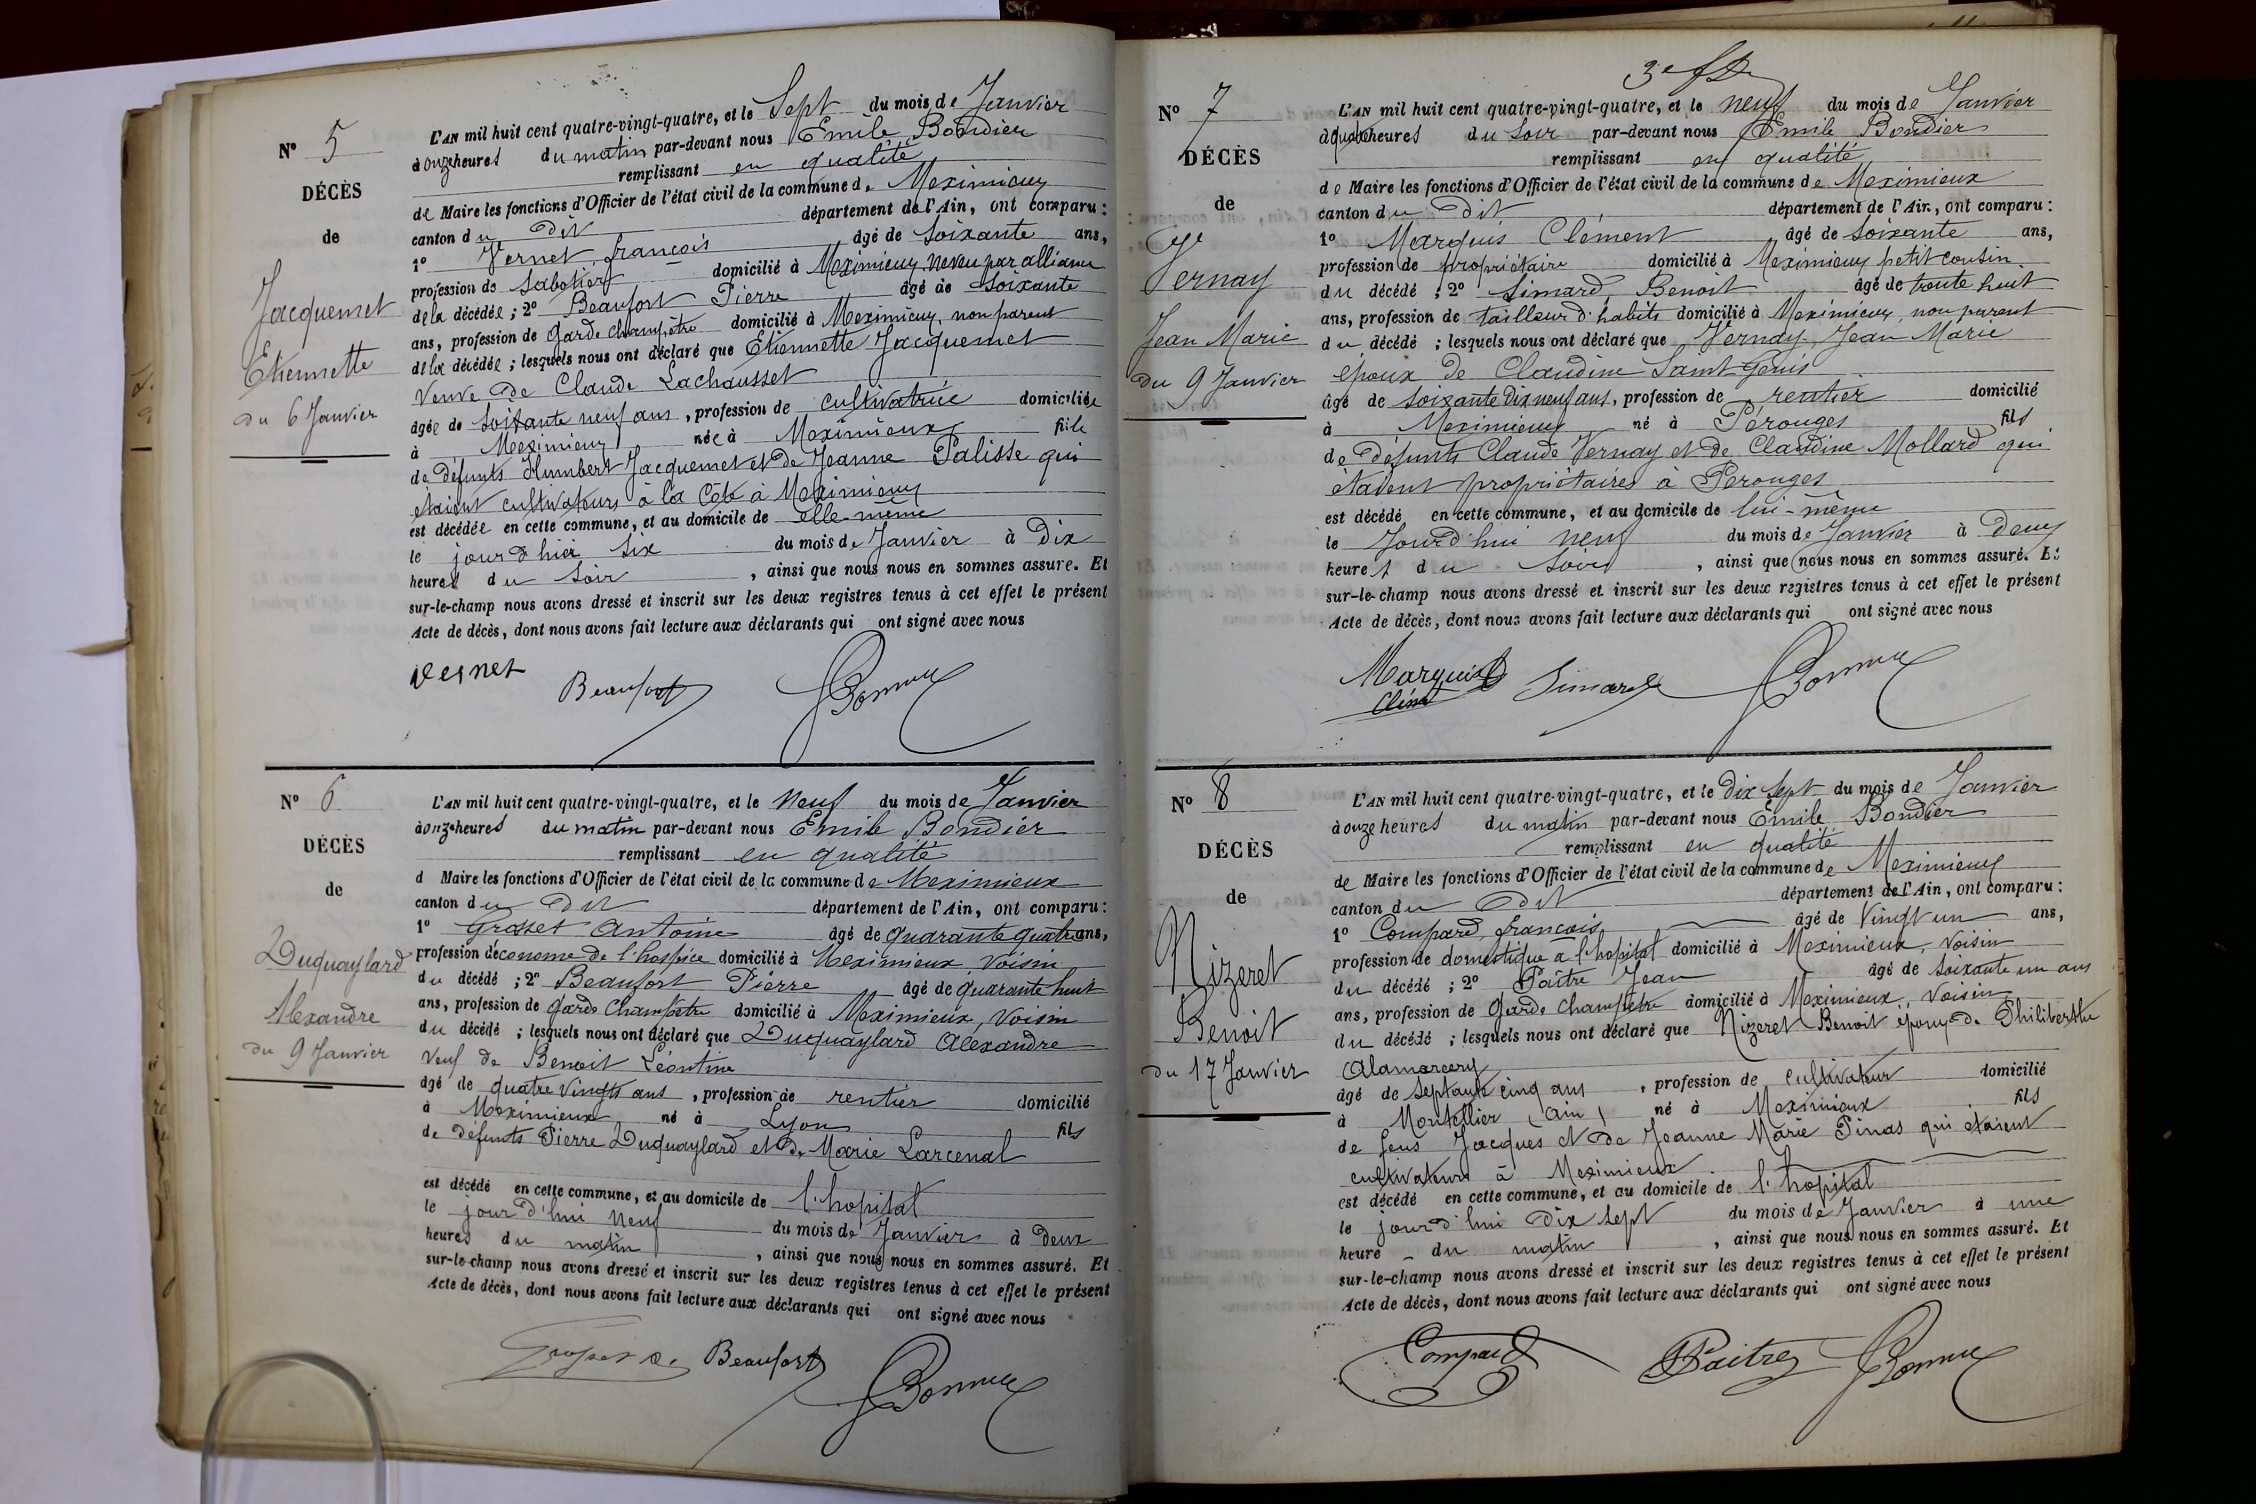 Nº 5
DÉCÈS
de
Jacquemet
Etiennette
du 6 Janvier
L'AN mil huit cent quatre-vingt-quatre, et le Sept du mois de Janvier
à onze heures du matin par-devant nous Emile Bondier
remplissant en qualité
de Maire les fonctions d'Officier de l'état civil de la commune de Meximieux
canton du dit département de l'Ain, ont comparu :
1º Vernet françois âgé de soixante ans,
profession de sabotier domicilié à Meximieux neveu par alliance
de la décédée ; 2º Beaufort Pierre âgé de soixante
ans, profession de garde champêtre domicilié à Meximieux, non parent
de la décédée ; lesquels nous ont déclaré que Etiennette Jacquemet
Veuve de Claude Lachausset
âgée de soixante neuf ans, profession de cultivatrice domiciliée
à Meximieux née à Meximieux fille
de défunts Humbert Jacquemet et de Jeanne Palisse qui
étaient cultivateurs à la Côte à Meximieux
est décédée en cette commune, et au domicile de elle-même
le jour d'hier six du mois de Janvier à Dix
heures du soir, ainsi que nous nous en sommes assuré. Et
sur-le-champ nous avons dressé et inscrit sur les deux registres tenus à cet effet le présent
Acte de décès, dont nous avons fait lecture aux déclarants qui ont signé avec nous
Vernet Beaufort
Nº 6
DÉCÈS
de
Duquaylard
Alexandre
du 9 Janvier
L'AN mil huit cent quatre-vingt-quatre, et le Neuf du mois de Janvier
à onze heures du matin par-devant nous Emile Bondier
remplissant en qualité
d Maire les fonctions d'Officier de l'état civil de la commune de Meximieux
canton du dit département de l'Ain, ont comparu :
1º Grosset Antoine âgé de quarante quatre ans,
profession d'économe de l'hospice domicilié à Meximieux, voisin
du décédé ; 2º Beaufort Pierre âgé de quarante huit
ans, profession de garde champêtre domicilié à Meximieux, voisin
du décédé ; lesquels nous ont déclaré que Duquaylard Alexandre
Veuf de Benoit Léontine
âgé de quatre vingts ans, profession de rentier domicilié
à Meximieux né à Lyon fils
de défunts Pierre Duquaylard et de Marie Larcenal
est décédé en cette commune, et au domicile de l'hopital
le jour d'hui neuf du mois de Janvier à deux
heures du matin, ainsi que nous nous en sommes assuré. Et
sur-le-champ nous avons dressé et inscrit sur les deux registres tenus à cet effet le présent
Acte de décès, dont nous avons fait lecture aux déclarants qui ont signé avec nous
Beaufort
3e
Nº 7
DÉCÈS
de
Vernay
Jean Marie
du 9 Janvier
L'AN mil huit cent quatre-vingt-quatre, et le neuf du mois de Janvier
à quatre heures du soir par-devant nous Emile Bondier
remplissant en qualité
de Maire les fonctions d'Officier de l'état civil de la commune de Meximieux
canton du dit département de l'Ain, ont comparu :
1º Marquis Clément âgé de soixante ans,
profession de propriétaire domicilié à Meximieux petit cousin
du décédé ; 2º Simard, Benoit âgé de trente huit
ans, profession de tailleur d'habits domicilié à Meximieux, non parent
du décédé ; lesquels nous ont déclaré que Vernay, Jean Marie
époux de Claudine Saint Genis
âgé de soixante dix neuf ans, profession de rentier domicilié
à Meximieux né à Pérouges fils
de défunts Claude Vernay et de Claudine Mollard qui
étaient propriétaires à Pérouges
est décédé en cette commune, et au domicile de lui-même
le Jourd'hui neuf du mois de Janvier à Deux
heures du soir, ainsi que nous nous en sommes assuré. Et
sur-le-champ nous avons dressé et inscrit sur les deux registres tenus à cet effet le présent
Acte de décès, dont nous avons fait lecture aux déclarants qui ont signé avec nous
Marquis Simard
Clément
Nº 8
DÉCÈS
de
Nizeret
Benoit
du 17 Janvier
L'AN mil huit cent quatre-vingt-quatre, et le Dix sept du mois de Janvier
à onze heures du matin par-devant nous Emile Bondier
remplissant en qualité
de Maire les fonctions d'Officier de l'état civil de la commune de Meximieux
canton du dit département de l'Ain, ont comparu :
1º Compard, françois âgé de Vingt un ans,
profession de domestique a l'hopital domicilié à Meximieux, voisin
du décédé ; 2º Paître Jean âgé de soixante un ans
ans, profession de garde champêtre domicilié à Meximieux, voisin
du décédé ; lesquels nous ont déclaré que Nizeret Benoit époux de Philiberthe
Alamercery
âgé de septante cinq ans, profession de cultivateur domicilié
à Montellier (Ain) né à Meximieux fils
de feus Jacques et de Jeanne Marie Pinas qui étaient
cultivateurs à Meximieux
est décédé en cette commune, et au domicile de l'hopital
le jourd'hui dix sept du mois de Janvier à une
heure du matin, ainsi que nous nous en sommes assuré. Et
sur-le-champ nous avons dressé et inscrit sur les deux registres tenus à cet effet le présent
Acte de décès, dont nous avons fait lecture aux déclarants qui ont signé avec nous
Compard Paitre